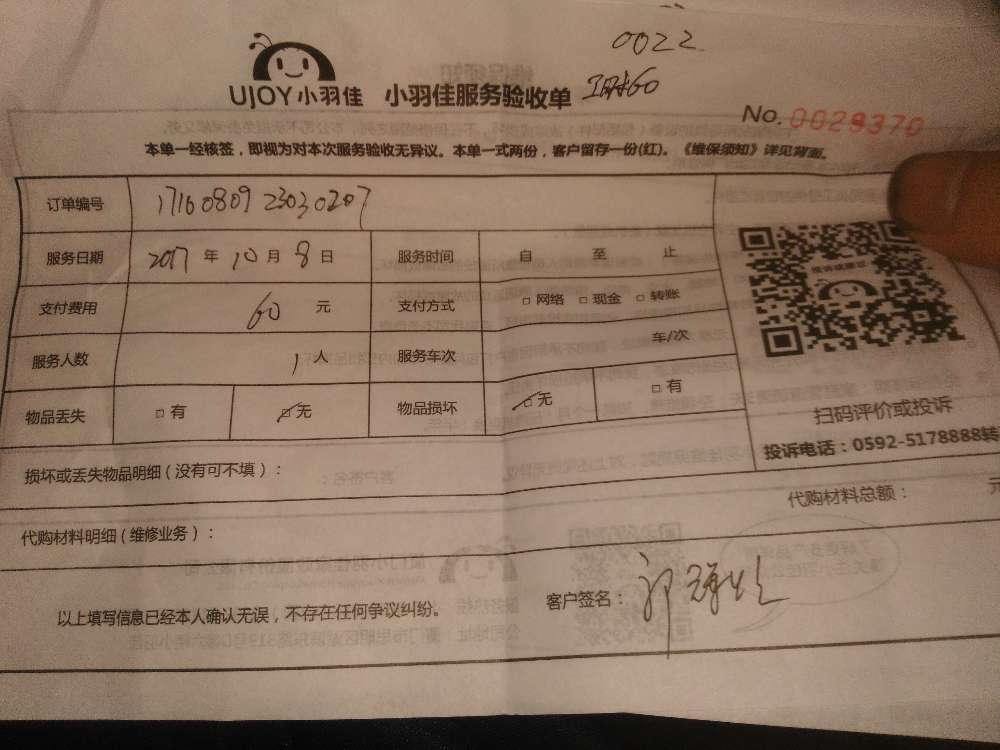 0022
UJOY小羽佳 小羽佳服务验收单
No. 0029370
本单一经核签，即视为对本次服务验收无异议。本单一式两份，客户留存一份(红)。《维保须知》详见背面。
订单编号 1716080923030207
服务日期 2017 年 10 月 8 日 服务时间 自 至 止
支付费用 60 元 支付方式 □ 网络 □ 现金 □ 转账
服务人数 1 人 服务车次 车/次
物品丢失 □ 有 □ 无 物品损坏 □ 无 □ 有
扫码评价或投诉
投诉电话：0592-5178888转
损坏或丢失物品明细（没有可不填）：
代购材料明细（维修业务）： 代购材料总额： 元
以上填写信息已经本人确认无误，不存在任何争议纠纷。 客户签名：